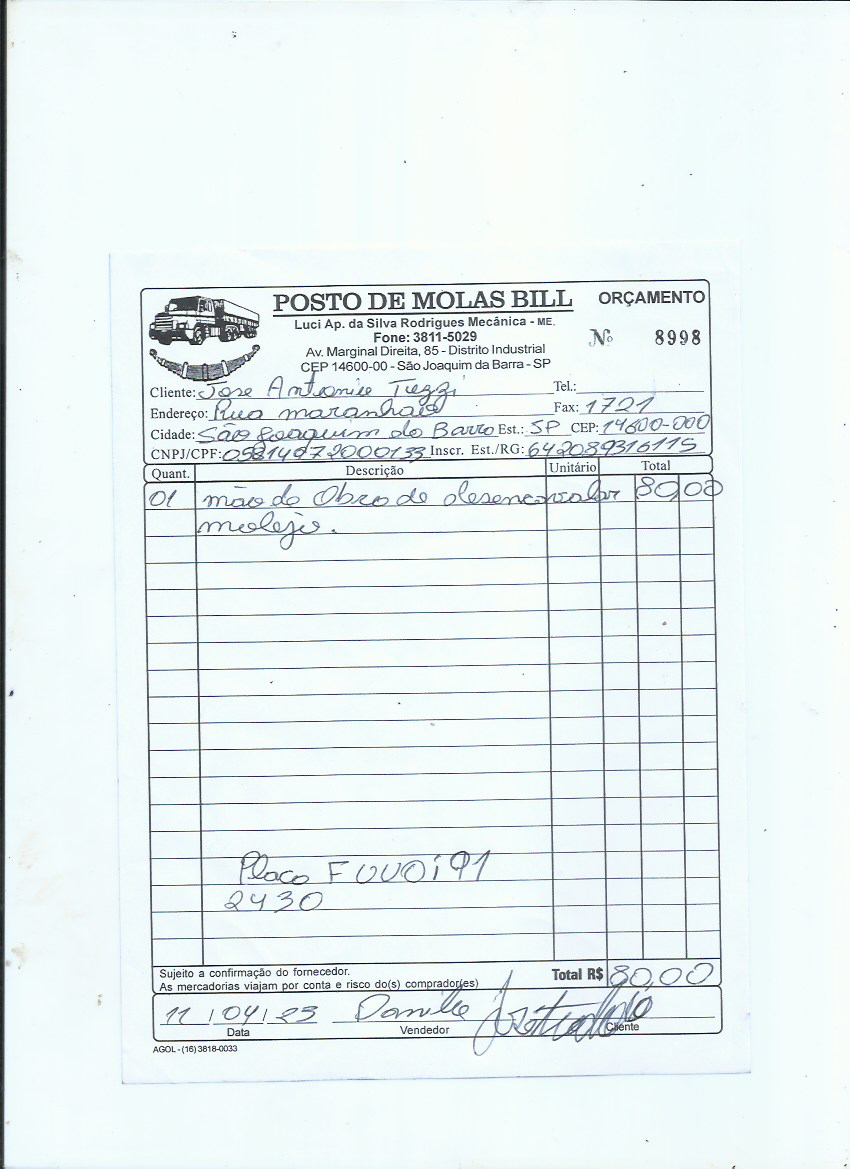 POSTO DE MOLAS BILL ORÇAMENTO
Luci Ap. da Silva Rodrigues Mecânica - ME.
Fone: 3811-5029
Nº 8998
Av. Marginal Direita, 85 - Distrito Industrial
CEP 14600-00 - São Joaquim da Barra - SP
Cliente: Jose Antonio Tezzi Tel.:
Endereço: Rua maranhão Fax: 1721
Cidade: São Joaquim da Barra Est.: SP CEP: 14600-000
CNPJ/CPF: Inscr. Est./RG: 642089316115
Quant. Descrição Unitário Total
01 mão de Obra de desencavalar 80,00
molejo.
Placa
2430
Sujeito a confirmação do fornecedor.
As mercadorias viajam por conta e risco do(s) comprador(es)
Total R$ 80,00
11/04/23 Danilo
Data Vendedor Cliente
AGOL - (16) 3818-0033